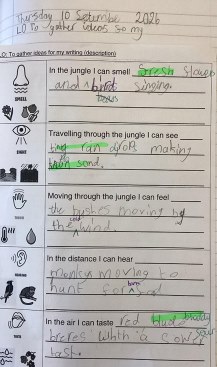 Thursday 10 September 2026
LO To gather ideas so my
LO: To gather ideas for my writing (description)
In the jungle I can smell fresh flower
and birds singing.
SMELL
Travelling through the jungle I can see
tiny rain drops making
sand.
SIGHT
Moving through the jungle I can feel
the bushes moving by
the cold wind.
TOUCH
In the distance I can hear
moving to
hunt for food
HEARING
In the air I can taste red
with a sower
tast.
TASTE